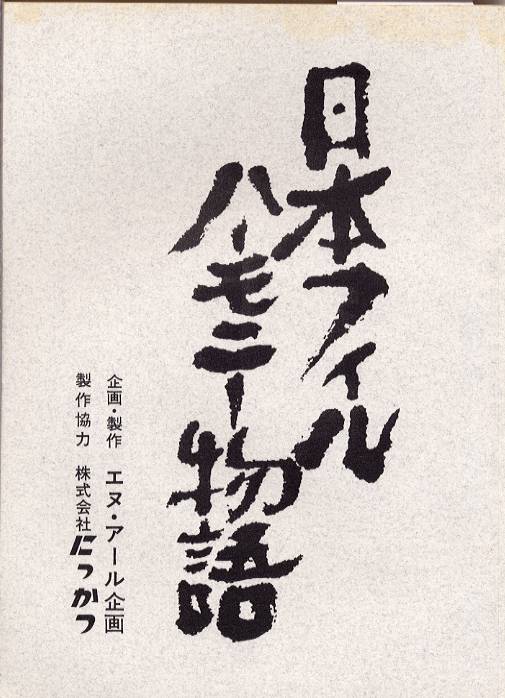 日本フィル
ハーモニー物語
企画・製作 エヌ・アール企画
製作協力 株式会社にっかつ